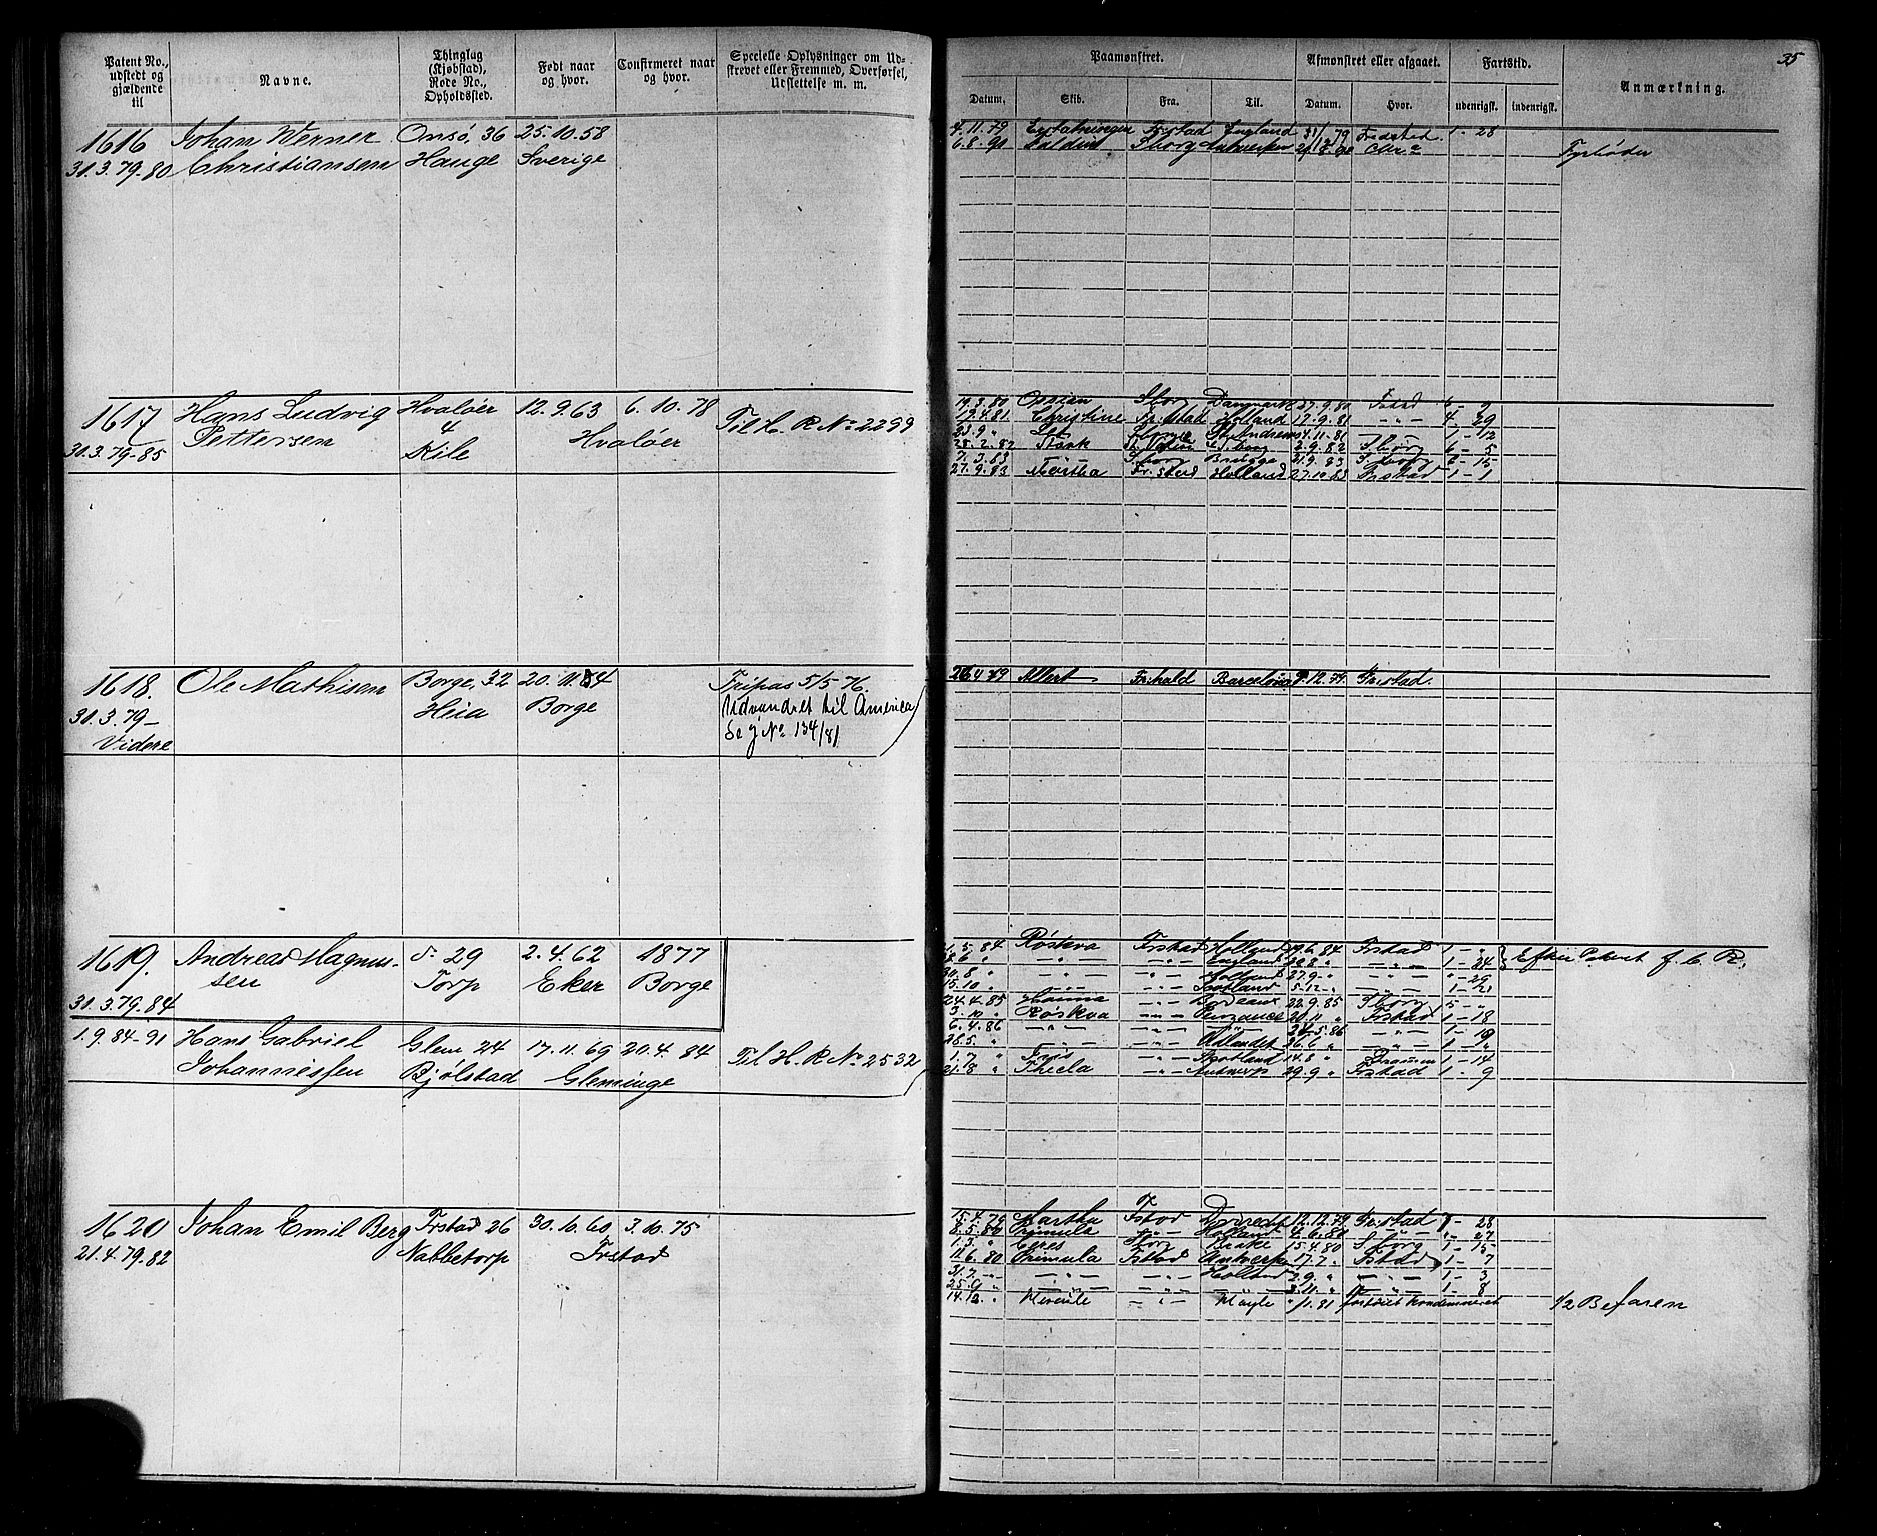 Patent No., udstedt og gjældende til
Navne.
Thinglag (Kjøbstad), Rode No., Opholdssted.
Født naar og hvor.
Confirmeret naar og hvor.
Specielle Oplysninger om Udskrevet eller Fremmed, Overførsel, Udslettelse m. m.
Paamønstret.
Afmønstret eller afgaaet.
Fartstid.
Anmærkning.
35
Datum.
Skib.
Fra.
Til.
Datum.
Hvor.
udenrigsk.
indenrigsk.
1616 Johan Werner Onsö, 36 25.10.58
30.3.79-80 Christiansen Hauge Sverige
4.11.79 Frstad England 31/1 79 Fredstad 1 - 28
6.8.90 Sborg Antwerpen Chr.a
Fyrbøder
1617 Hans Ludvig Hvaløer 12.9.63 6.10.78 Til H. R No 2299
30.3.79-85 Pettersen 4 Kile Hvaløer
19.3.80 Sborg Danmark 27.9.80 Fstad
19.4.81 Christine Fr.stad Holland 17.9.81 - " - 4 - 29
23.9 " 4.11.81 1 - 12
28.2.82 2.9.82 Sborg 6 - 5
7.3.83 Sborg 21.9.83 Sborg 6 - 15
27.9.83 Martha Fr.stad Holland 27.10.83 Frstad 1 - 1
1618. Ole Mathisen Borge, 32 20.11.84 Fripas 5/5 76.
30.3.79- Heia Borge Udvandret til America
Videre Se J No 134/81
26.4.79 Albert Barcelona 9.12.79 Fristad.
1619. Andreas Magnus- d. 29 2.4.62 1877
sen Torp Eker Borge
30.3.79.84
1.9.84-91 Hans Gabriel Glem 24 17.11.69 20.4.84 Til H. R No 2532
Johannessen Bjølstad Gleminge
1.5.84 Røskva Frstad Holland 19.6.84 Frstad 1 - "
18.6 " - " - - " - England - " - 1 - 24
30.8 " - " - - " - Holland 27.9 - " " - 29
15.10 " - " - - " - Skotland 5.12 - " - " - 1 - 21
24.4.85 Hanna - " - Bordeaux 22.9.85 Sborg 5 - "
5.10 " Røskva - " - 20.11 " Frstad 1 - 18
6.4.86 - " - - " - - " - 24.5.86 - " - 1 - 19
28.5 " - " - - " - 26.6 " - " - 1 - "
1.7 " - " - Skotland 14.8 " 1 - 14
21.8 " Thecla - " - Antwerp 29.9 " Frstad 1 - 9
Efter Patent f. C. R.
1620 Johan Emil Berg Frstad 26 30.10.60 3.10.75
21.4.79.82 Nabbetorp Frstad
15.4.79 Martha Fstad Dordrecht 12.12.79 Fristad 7 - 28
8.5.80 Primula - " - Holland 4.6.80 - " - " - 27
1.3. " Ceres Sborg Brake 15.4.80 Sborg 1 - 15
11.6.80 Primula Fstad Antwerp 17.7 " Fstad 1 - 7
31.7 - " - - " - - " - Holland 2.9. " - " - 1 - 3
25.9 " - " - - " - 3.11. " - " - 1 - 8
14.12. " - " - " /1.81 forliist kondemneret
1/2 Befaren